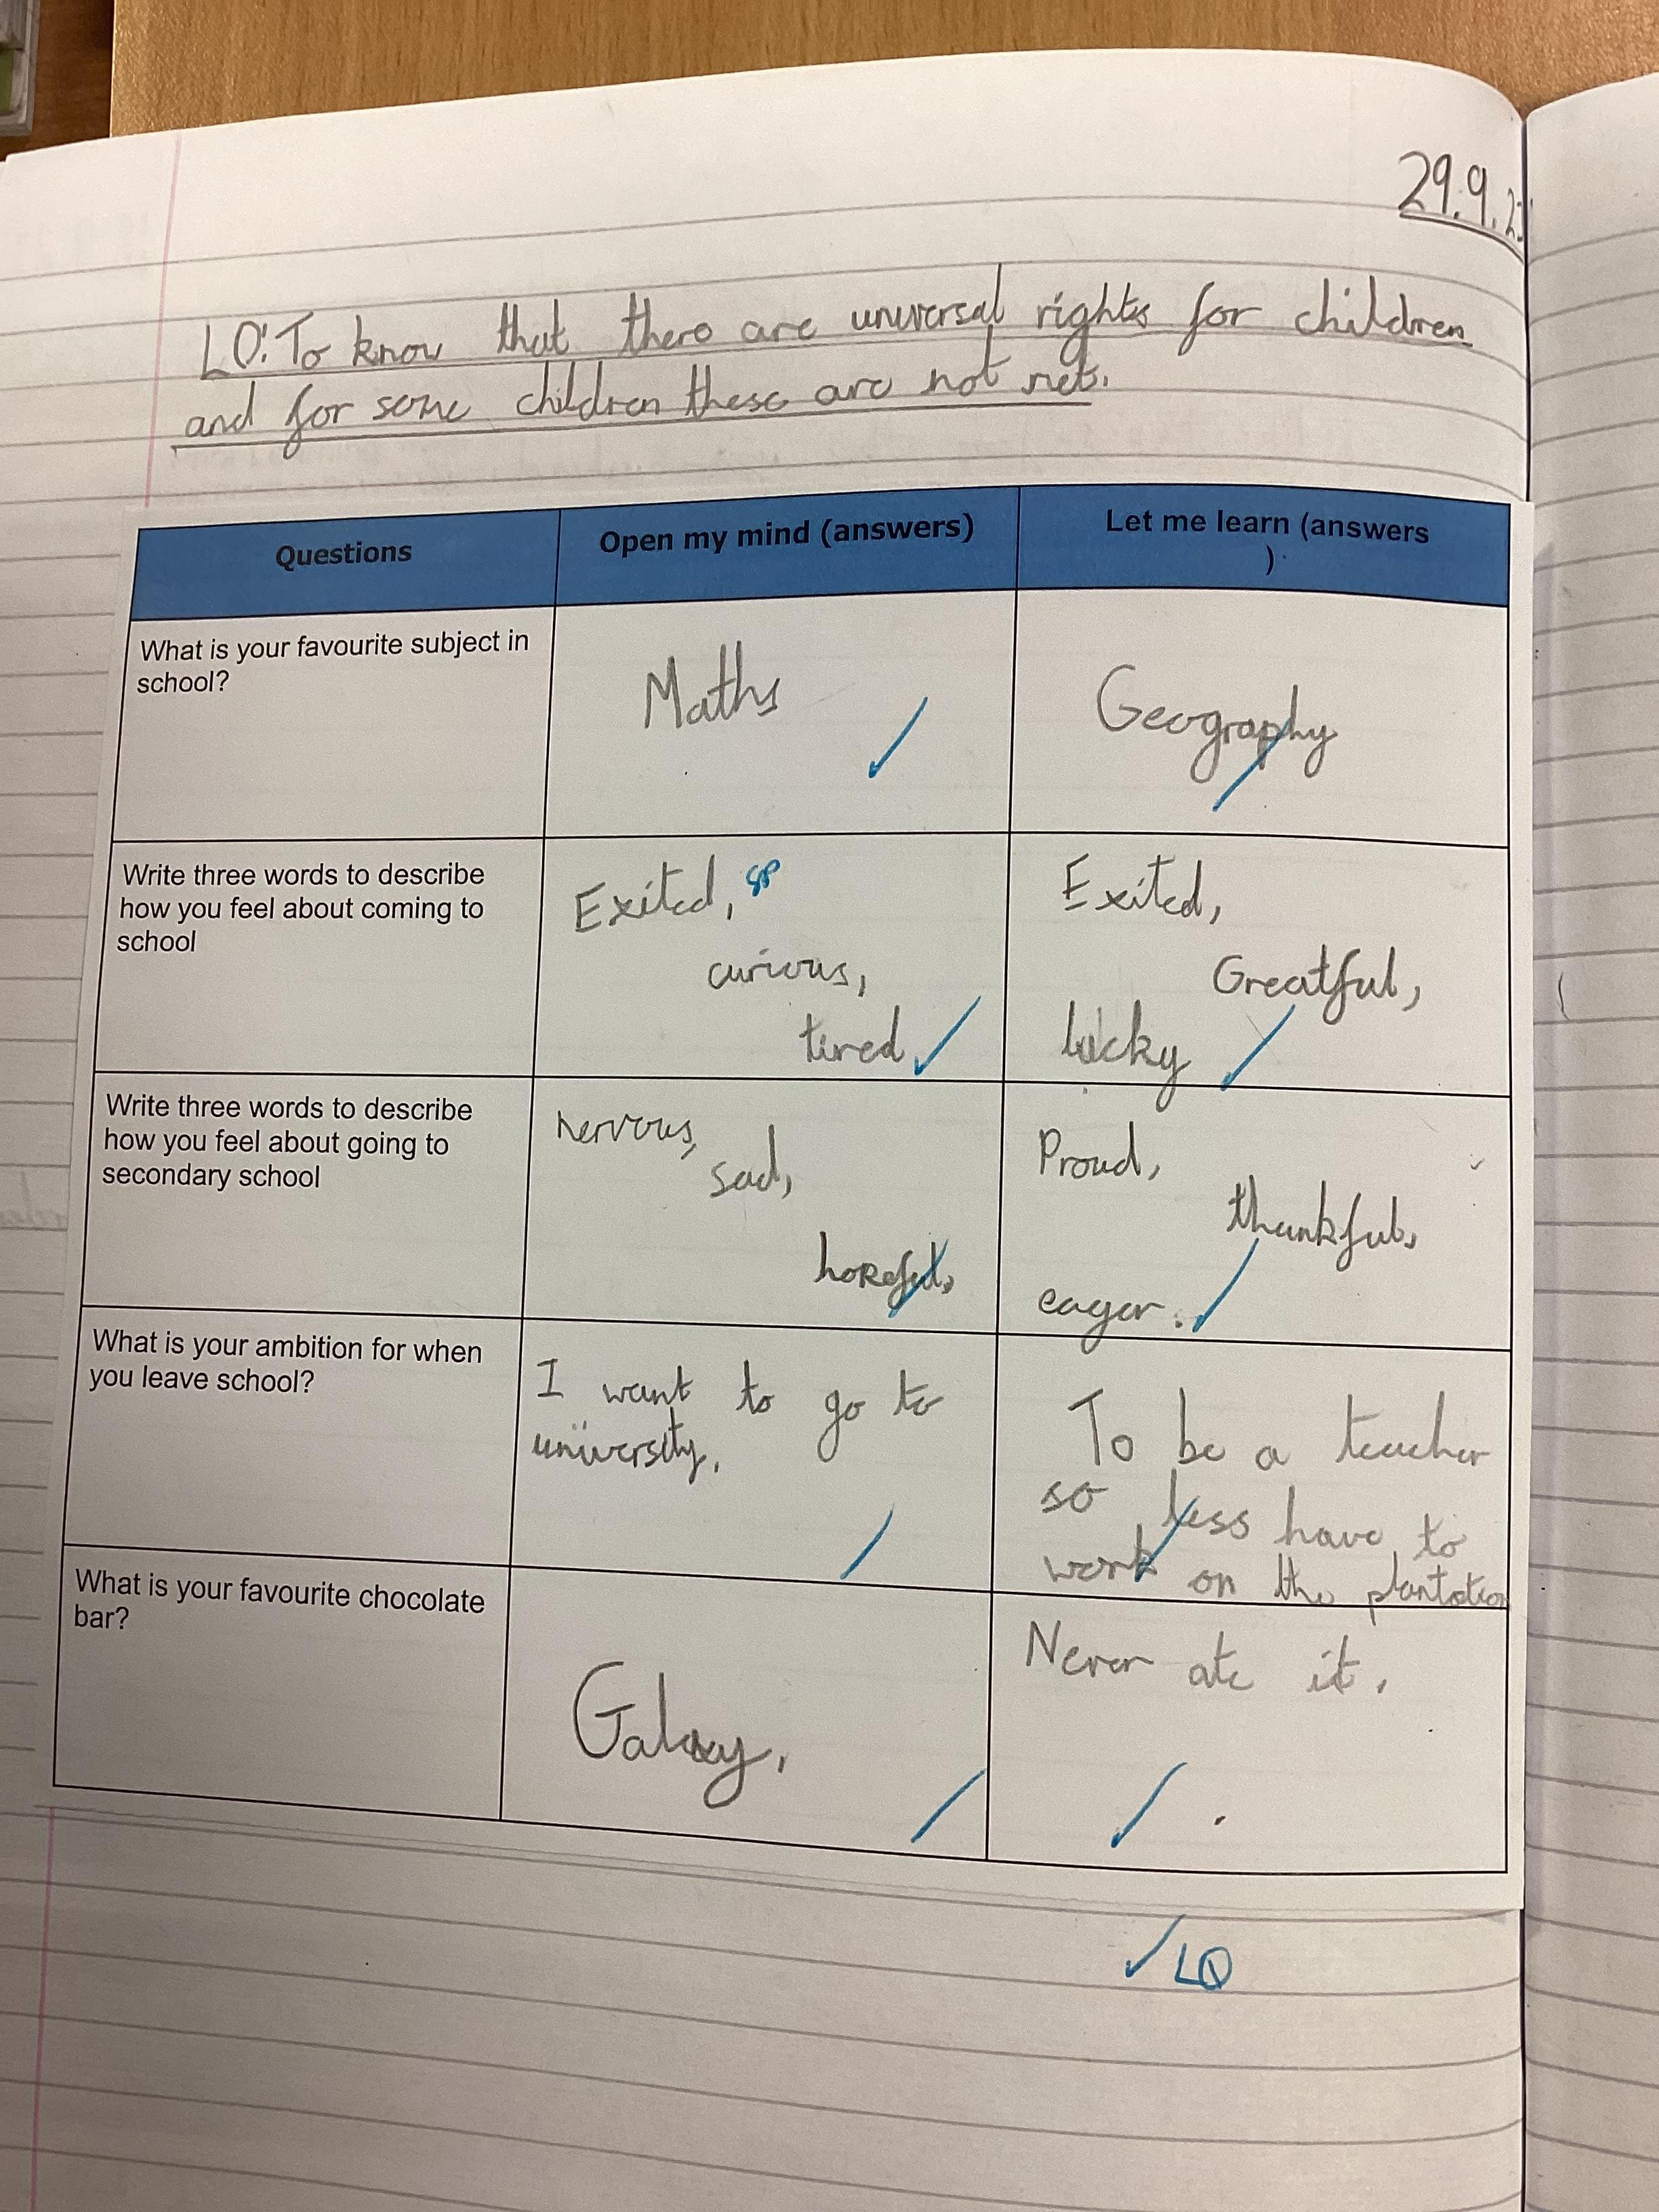 29.9.2
LO: To know that there are universal rights for children
and for some children these are not met.
Questions
Open my mind (answers)
Let me learn (answers
)
What is your favourite subject in
school?
Maths
Geography
Write three words to describe
how you feel about coming to
school
Exited, sp
curious,
tired
Exited,
Greatful,
lucky
Write three words to describe
how you feel about going to
secondary school
nervous,
sad,
hopeful,
Proud,
thankful,
eager.
What is your ambition for when
you leave school?
I want to go to
university.
To be a teacher
so less have to
work on the plantation
What is your favourite chocolate
bar?
Galaxy.
Never ate it.
LO